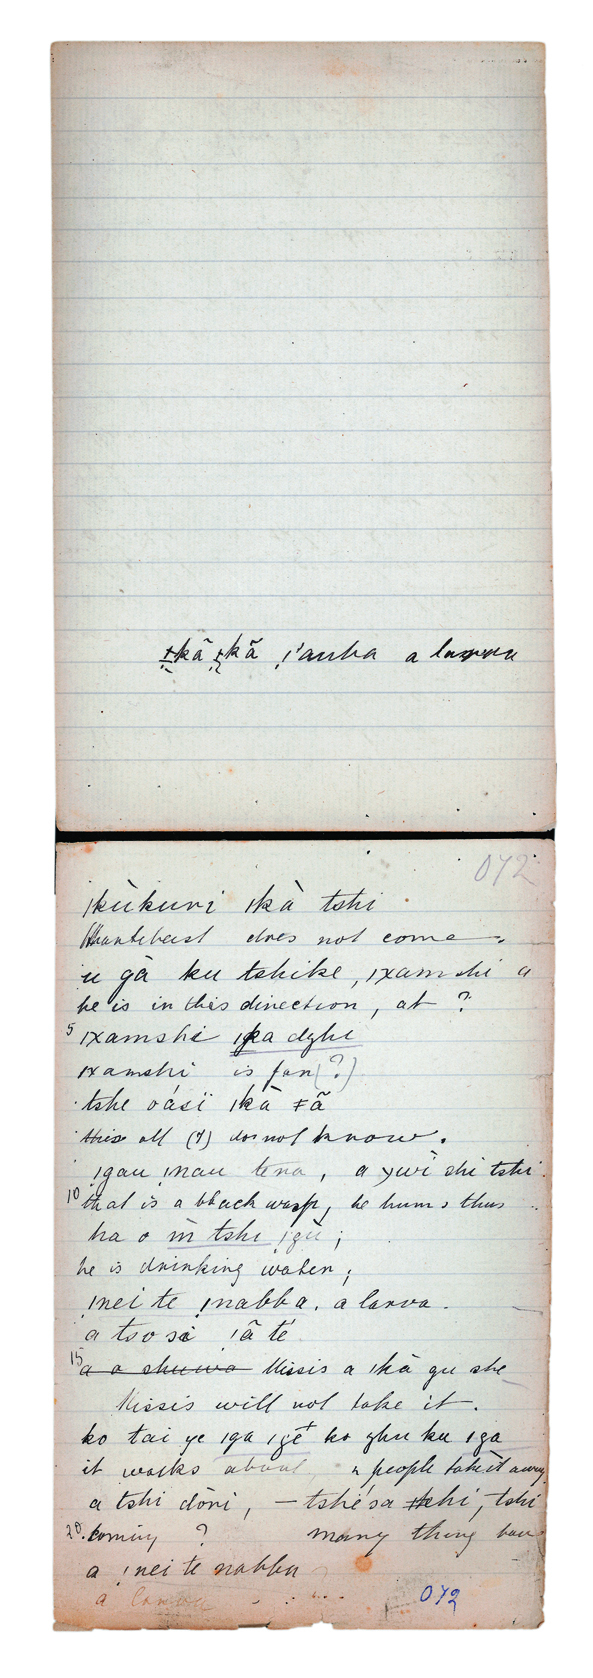 ǂkã ǂkã ǃ'auba a larva
072
ǀkùkuni ǀkà tshi
Hartebeest does not come.
u gà ku tshike, ǀxamshi a
he is in this direction, at ?
5 ǀxamshi ǀka dzhi
ǀxamshi is far (?)
tshe oásï ǀkà ǂã
this all (?) do not know.
ǃgau ǃnau tena, a xwì shi tshi
10 that is a black wasp, he hums thus
ha o m̀ tshi ǃgù;
he is drinking water;
ǃnei te ǃnabba. a larva.
a tso si ǀã te
15 a o shuwa Missis a ǀkà gu she
Missis will not take it.
ko tai ye ǀga ǀgè ko zhu ku ǀga
it walks about, people take it away
a tshi dòni, – tshé sa tshi, tshi
20. coming ? many thing
a ǃnei te nabba
a larva
072